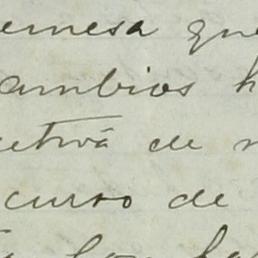 emesa que
ambios h
etivá de
curso de